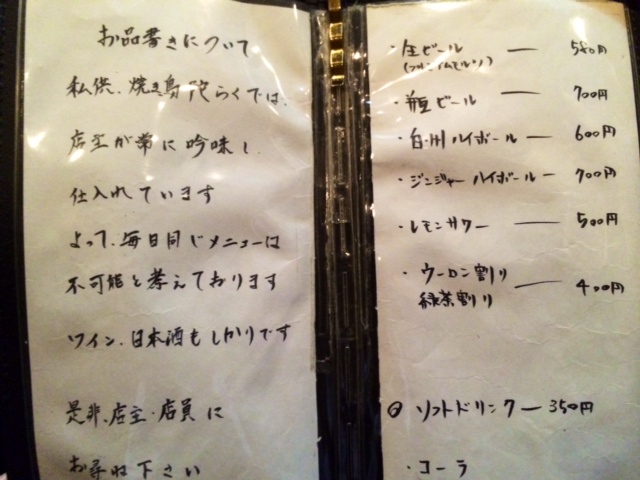 お品書きについて
私供、焼き鳥陀らくでは、
店主が常に吟味し
仕入れています
よって、毎日同じメニューは
不可能と考えております
ワイン、日本酒もしかりです
是非、店主・店員に
お尋ね下さい
・生ビール ― 580円
(プレミアムモルツ)
・瓶ビール ― 700円
・白州ハイボール ― 600円
・ジンジャーハイボール ― 700円
・レモンサワー ― 500円
・ウーロン割り
緑茶割り ― 400円
◎ ソフトドリンク ― 350円
・コーラ